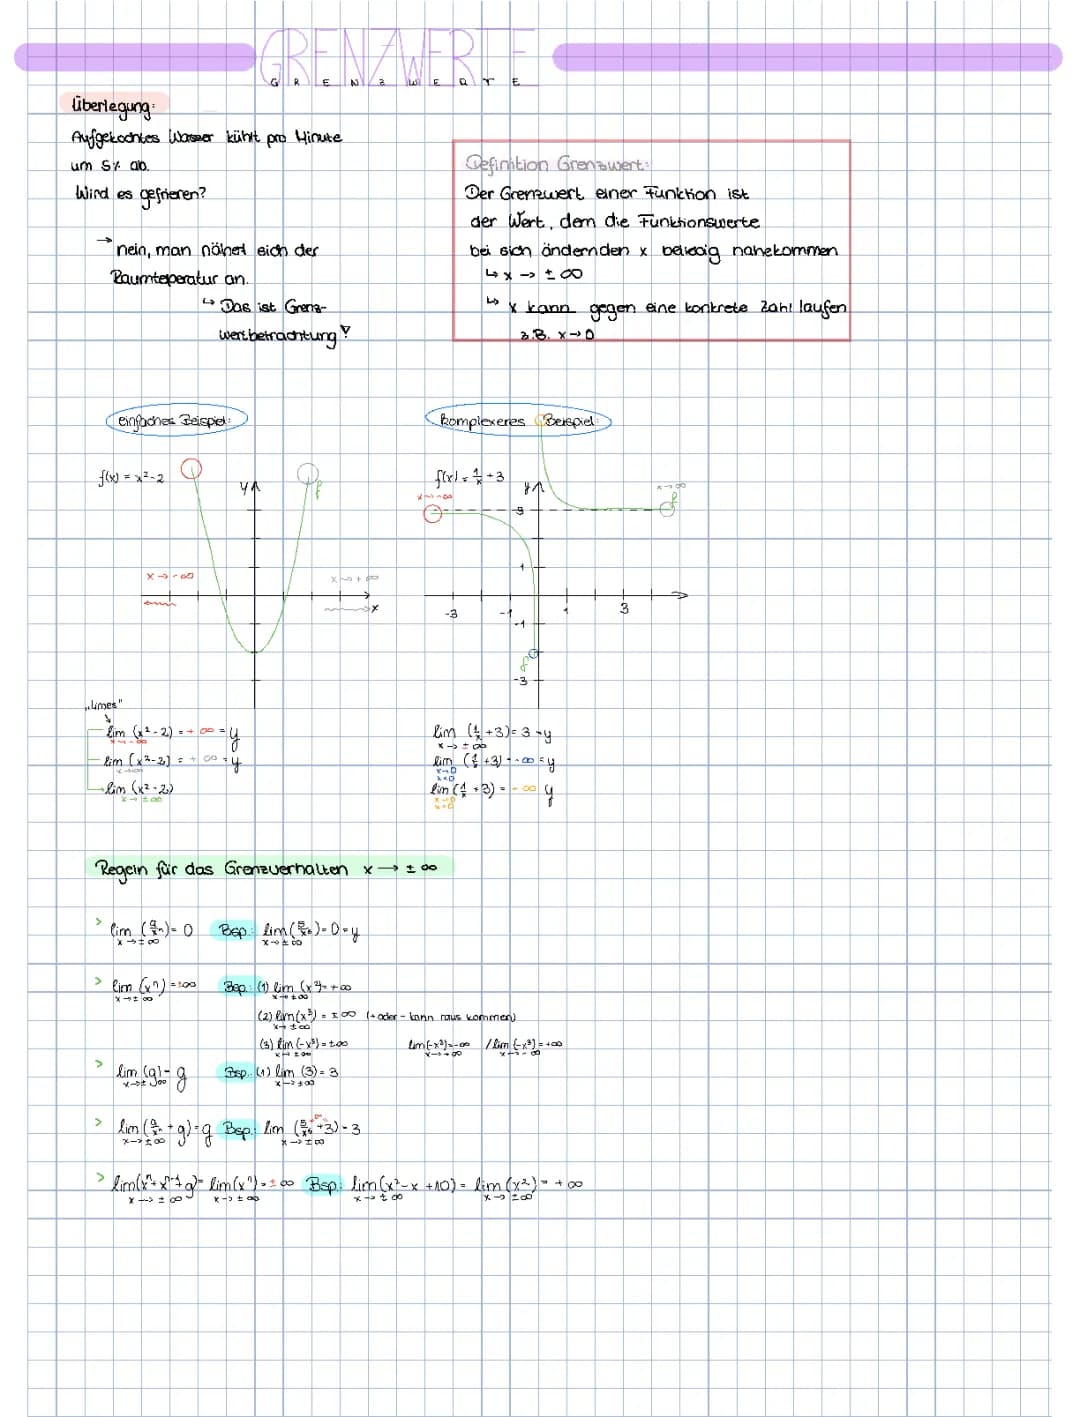 GRENZWERTE
GRENZWERTE
Überlegung:
Aufgekochtes Wasser kühlt pro Minute
um 5% ab.
Wird es gefrieren?
→ nein, man nähert sich der
Raumteperatur an.
↳ Das ist Grenz-
wertbetrachtung!
Definition Grenzwert:
Der Grenzwert einer Funktion ist
der Wert, dem die Funktionswerte
bei sich ändernden x beliebig nahekommen
↳ x → ± ∞
↳ x kann gegen eine konkrete Zahl laufen
z.B. x→0
einfaches Beispiel:
f(x) = x²-2
y
f
x → -∞
x → +∞
x
komplexeres Beispiel:
f(x) = 1/x +3
x → -∞
y
x → ∞
f
3
1
-3 -1 1 3
-1
f
-3
„Limes"
lim (x²-2) = + ∞ = y
x → -∞
lim (x²-2) = + ∞ = y
x → ∞
lim (x²-2)
x → ± ∞
lim (1/x +3) = 3 = y
x → ± ∞
lim (1/x +3) = -∞ = y
x→0
x<0
lim (1/x +3) = - ∞ y
x→0
Regeln für das Grenzverhalten x → ± ∞
> lim (a/xⁿ) = 0 Bsp: lim (5/x⁶) = 0 = y
x → ± ∞ x → ± ∞
> lim (xⁿ) = ±∞ Bsp: (1) lim (x²) = +∞
x → ± ∞ x → ± ∞
(2) lim (x³) = ± ∞ (+ oder - kann raus kommen)
x → ± ∞
(3) lim (-x³) = ±∞ lim (-x³) = -∞ / lim (-x³) = +∞
x → ± ∞ x → +∞ x → -∞
> lim (g) = g Bsp: (1) lim (3) = 3
x → ± ∞ x → ± ∞
> lim (a/xⁿ + g) = g Bsp: lim (5/x⁶ +3) = 3
x → ± ∞ x → ± ∞
> lim (xⁿ + xⁿ⁻¹ + g) = lim (xⁿ) = ± ∞ Bsp: lim (x² - x + 10) = lim (x²) = + ∞
x → ± ∞ x → ± ∞ x → ± ∞ x → ± ∞